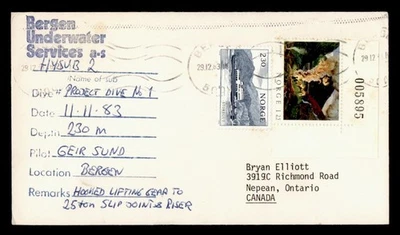 Bergen
Underwater
Services a-s
HYSUB 2
Name of sub
Dive # PROJECT DIVE No 1
Date 11.11.83
Depth 230 M
Pilot GEIR SUND
Location BERGEN
Remarks HOOKED LIFTING GEAR TO
25 ton SLIP JOINT & RISER
2.50 NORGE
NORGE
005895
Bryan Elliott
3919C Richmond Road
Nepean, Ontario
CANADA